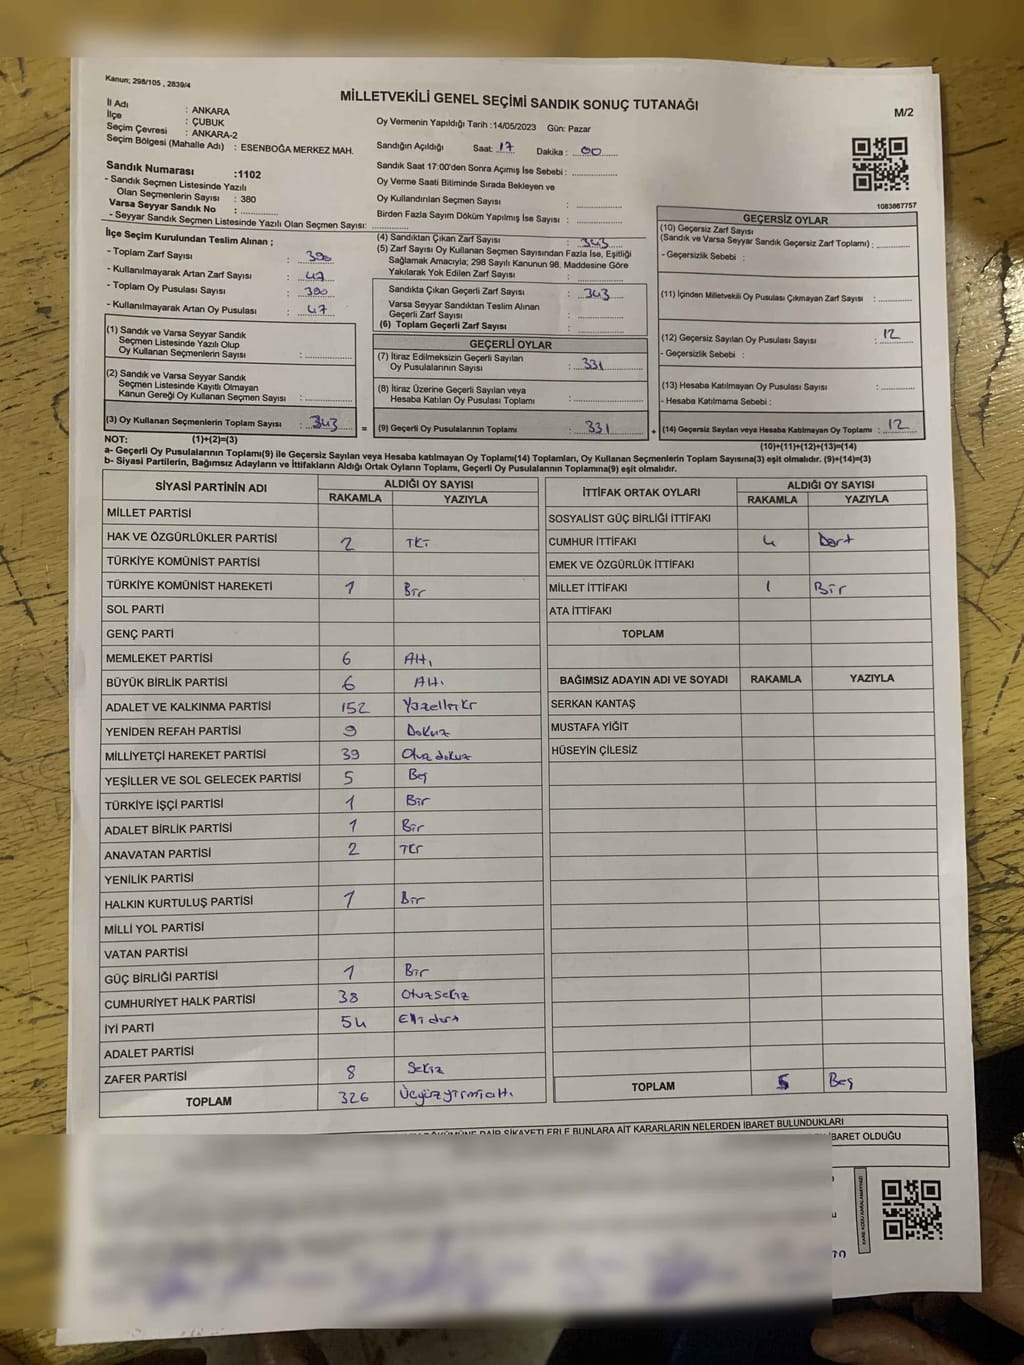 Kanun; 298/105 , 2839/4
MİLLETVEKİLİ GENEL SEÇİMİ SANDIK SONUÇ TUTANAĞI
M/2
İl Adı : ANKARA
İlçe : ÇUBUK
Seçim Çevresi : ANKARA-2
Seçim Bölgesi (Mahalle Adı) : ESENBOĞA MERKEZ MAH.
Oy Vermenin Yapıldığı Tarih :14/05/2023 Gün: Pazar
Sandığın Açıldığı Saat: 17 Dakika : 00
Sandık Saat 17:00'den Sonra Açımış İse Sebebi :
Oy Verme Saati Bitiminde Sırada Bekleyen ve
Oy Kullandırılan Seçmen Sayısı :
Birden Fazla Sayım Döküm Yapılmış İse Sayısı :
1083867757
Sandık Numarası :1102
- Sandık Seçmen Listesinde Yazılı
Olan Seçmenlerin Sayısı : 380
Varsa Seyyar Sandık No :
- Seyyar Sandık Seçmen Listesinde Yazılı Olan Seçmen Sayısı:
İlçe Seçim Kurulundan Teslim Alınan ;
- Toplam Zarf Sayısı : 390
- Kullanılmayarak Artan Zarf Sayısı : 47
- Toplam Oy Pusulası Sayısı : 390
- Kullanılmayarak Artan Oy Pusulası : 47
(1) Sandık ve Varsa Seyyar Sandık
Seçmen Listesinde Yazılı Olup
Oy Kullanan Seçmenlerin Sayısı :
(2) Sandık ve Varsa Seyyar Sandık
Seçmen Listesinde Kayıtlı Olmayan
Kanun Gereği Oy Kullanan Seçmen Sayısı :
(3) Oy Kullanan Seçmenlerin Toplam Sayısı : 343 =
(4) Sandıktan Çıkan Zarf Sayısı : 343
(5) Zarf Sayısı Oy Kullanan Seçmen Sayısından Fazla İse, Eşitliği
Sağlamak Amacıyla; 298 Sayılı Kanunun 98. Maddesine Göre
Yakılarak Yok Edilen Zarf Sayısı :
Sandıkta Çıkan Geçerli Zarf Sayısı : 343
Varsa Seyyar Sandıktan Teslim Alınan
Geçerli Zarf Sayısı :
(6) Toplam Geçerli Zarf Sayısı :
GEÇERLİ OYLAR
(7) İtiraz Edilmeksizin Geçerli Sayılan
Oy Pusulalarının Sayısı : 331
(8) İtiraz Üzerine Geçerli Sayılan veya
Hesaba Katılan Oy Pusulası Toplamı :
(9) Geçerli Oy Pusulalarının Toplamı : 331 +
GEÇERSİZ OYLAR
(10) Geçersiz Zarf Sayısı
(Sandık ve Varsa Seyyar Sandık Geçersiz Zarf Toplamı) :
- Geçersizlik Sebebi :
(11) İçinden Milletvekili Oy Pusulası Çıkmayan Zarf Sayısı :
(12) Geçersiz Sayılan Oy Pusulası Sayısı : 12
- Geçersizlik Sebebi :
(13) Hesaba Katılmayan Oy Pusulası Sayısı :
- Hesaba Katılmama Sebebi :
(14) Geçersiz Sayılan veya Hesaba Katılmayan Oy Toplamı : 12
NOT: (1)+(2)=(3)
(10)+(11)+(12)+(13)=(14)
a- Geçerli Oy Pusulalarının Toplamı(9) ile Geçersiz Sayılan veya Hesaba katılmayan Oy Toplamı(14) Toplamları, Oy Kullanan Seçmenlerin Toplam Sayısına(3) eşit olmalıdır. (9)+(14)=(3)
b- Siyasi Partilerin, Bağımsız Adayların ve İttifakların Aldığı Ortak Oyların Toplamı, Geçerli Oy Pusulalarının Toplamına(9) eşit olmalıdır.
SİYASİ PARTİNİN ADI ALDIĞI OY SAYISI
RAKAMLA YAZIYLA
MİLLET PARTİSİ
HAK VE ÖZGÜRLÜKLER PARTİSİ 2 İKİ
TÜRKİYE KOMÜNİST PARTİSİ
TÜRKİYE KOMÜNİST HAREKETİ 1 Bir
SOL PARTİ
GENÇ PARTİ
MEMLEKET PARTİSİ 6 Altı
BÜYÜK BİRLİK PARTİSİ 6 Altı
ADALET VE KALKINMA PARTİSİ 152 Yüzelliiki
YENİDEN REFAH PARTİSİ 9 Dokuz
MİLLİYETÇİ HAREKET PARTİSİ 39 Otuz dokuz
YEŞİLLER VE SOL GELECEK PARTİSİ 5 Beş
TÜRKİYE İŞÇİ PARTİSİ 1 Bir
ADALET BİRLİK PARTİSİ 1 Bir
ANAVATAN PARTİSİ 2 İki
YENİLİK PARTİSİ
HALKIN KURTULUŞ PARTİSİ 1 Bir
MİLLİ YOL PARTİSİ
VATAN PARTİSİ
GÜÇ BİRLİĞİ PARTİSİ 1 Bir
CUMHURİYET HALK PARTİSİ 38 Otuzsekiz
İYİ PARTİ 54 Elli dört
ADALET PARTİSİ
ZAFER PARTİSİ 8 Sekiz
TOPLAM 326 Üçyüzyirmialtı
İTTİFAK ORTAK OYLARI ALDIĞI OY SAYISI
RAKAMLA YAZIYLA
SOSYALİST GÜÇ BİRLİĞİ İTTİFAKI
CUMHUR İTTİFAKI 4 Dört
EMEK VE ÖZGÜRLÜK İTTİFAKI
MİLLET İTTİFAKI 1 Bir
ATA İTTİFAKI
TOPLAM
BAĞIMSIZ ADAYIN ADI VE SOYADI RAKAMLA YAZIYLA
SERKAN KANTAŞ
MUSTAFA YİĞİT
HÜSEYİN ÇİLESİZ
TOPLAM 5 Beş
DAİR ŞİKAYETLERLE BUNLARA AİT KARARLARIN NELERDEN İBARET BULUNDUKLARI
İBARET OLDUĞU
KARE KODU KARALAMAYINIZ!